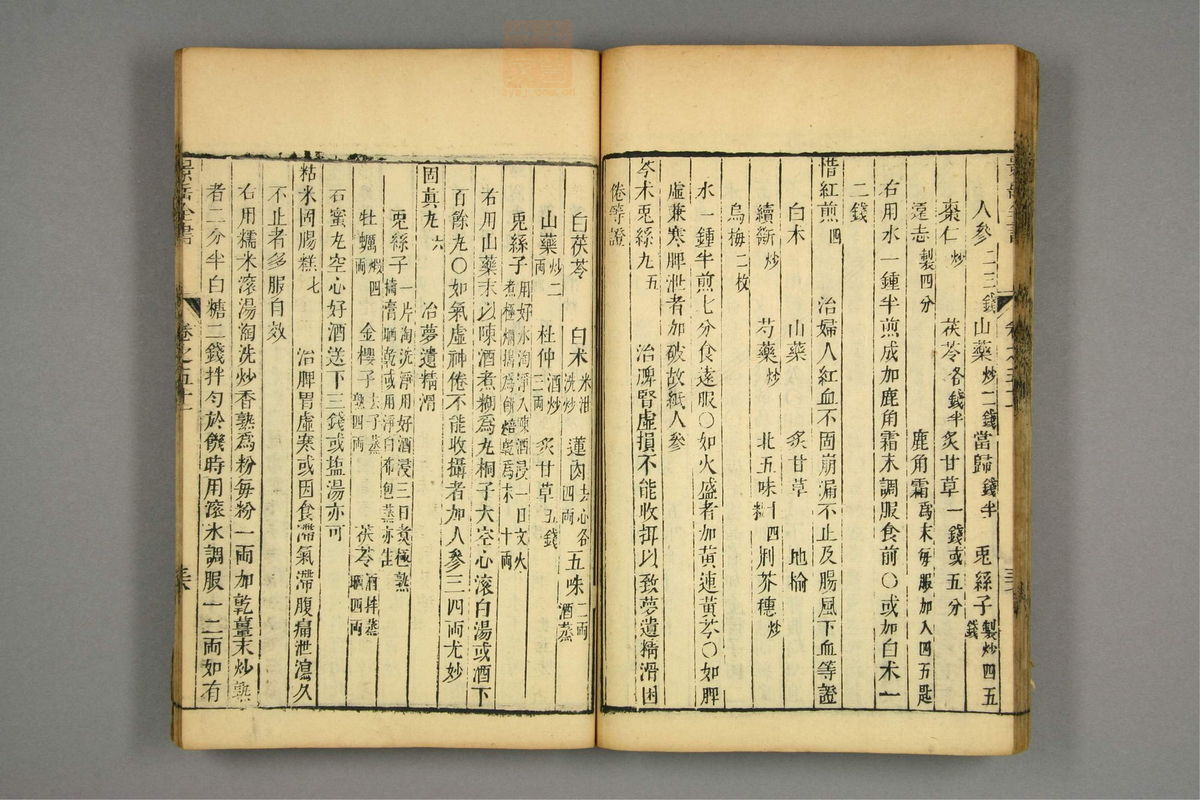 景岳全書 卷之五十一
人參二三錢 山藥炒二錢 當歸錢半 兎絲子製炒四五錢
棗仁炒 茯苓各錢半 炙甘草一錢或五分
遠志製四分 鹿角霜爲末每服加入四五匙
右用水一鍾半煎成加鹿角霜末調服食前○或加白术一
二錢
惜紅煎四 治婦人紅血不固崩漏不止及腸風下血等證
白术 山藥 炙甘草 地榆
續斷炒 芍藥炒 北五味十四粒 荆芥穗炒
烏梅二枚
水一鍾半煎七分食遠服○如火盛者加黃連黃芩○如脾
虛兼寒脾泄者加破故紙人參
苓术兎絲丸五 治脾腎虛損不能收拑以致夢遺精滑困
倦等證
白茯苓 白术米泔洗炒 蓮肉去心各四両 五味二両酒蒸
山藥炒二両 杜仲酒炒三両 炙甘草五錢
兎絲子用好水淘淨入陳酒浸一日文火煮極爛搗爲餅焙乾爲末十両
右用山藥末以陳酒煮糊爲丸桐子大空心滚白湯或酒下
百餘丸○如氣虛神倦不能收攝者加人參三四両尤妙
固真丸六 治夢遺精滑
兎絲子一片淘洗淨用好酒浸三日煑極熟擣膏晒乾或用淨白布包蒸亦佳
牡蠣煆四両 金櫻子去子蒸熟四両 茯苓酒拌蒸晒四両
石蜜丸空心好酒送下三錢或塩湯亦可
粘米固腸糕七 治脾胃虛寒或因食滯氣滯腹痛泄瀉久
不止者多服自效
右用糯米滚湯淘洗炒香熟爲粉每粉一両加乾薑末炒熟
者二分半白糖二錢拌匀於饑時用滚水調服一二両如有
景岳全書 卷之五十一